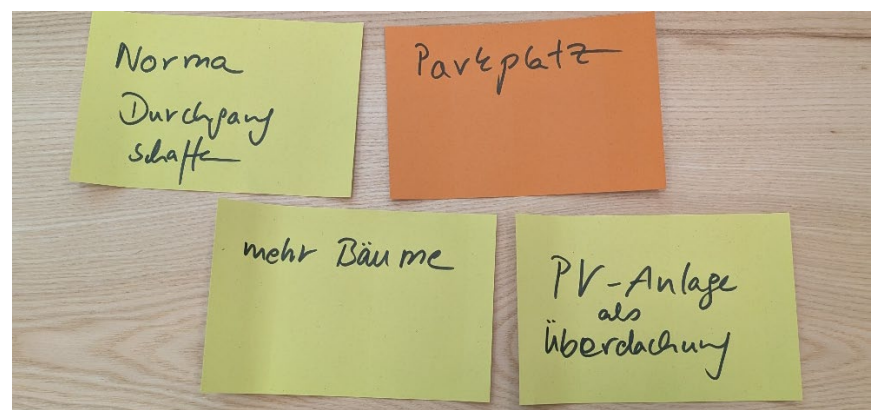 Norma
Durchgang
schaffen
Parkplatz
mehr Bäume
PV-Anlage
als
Überdachung